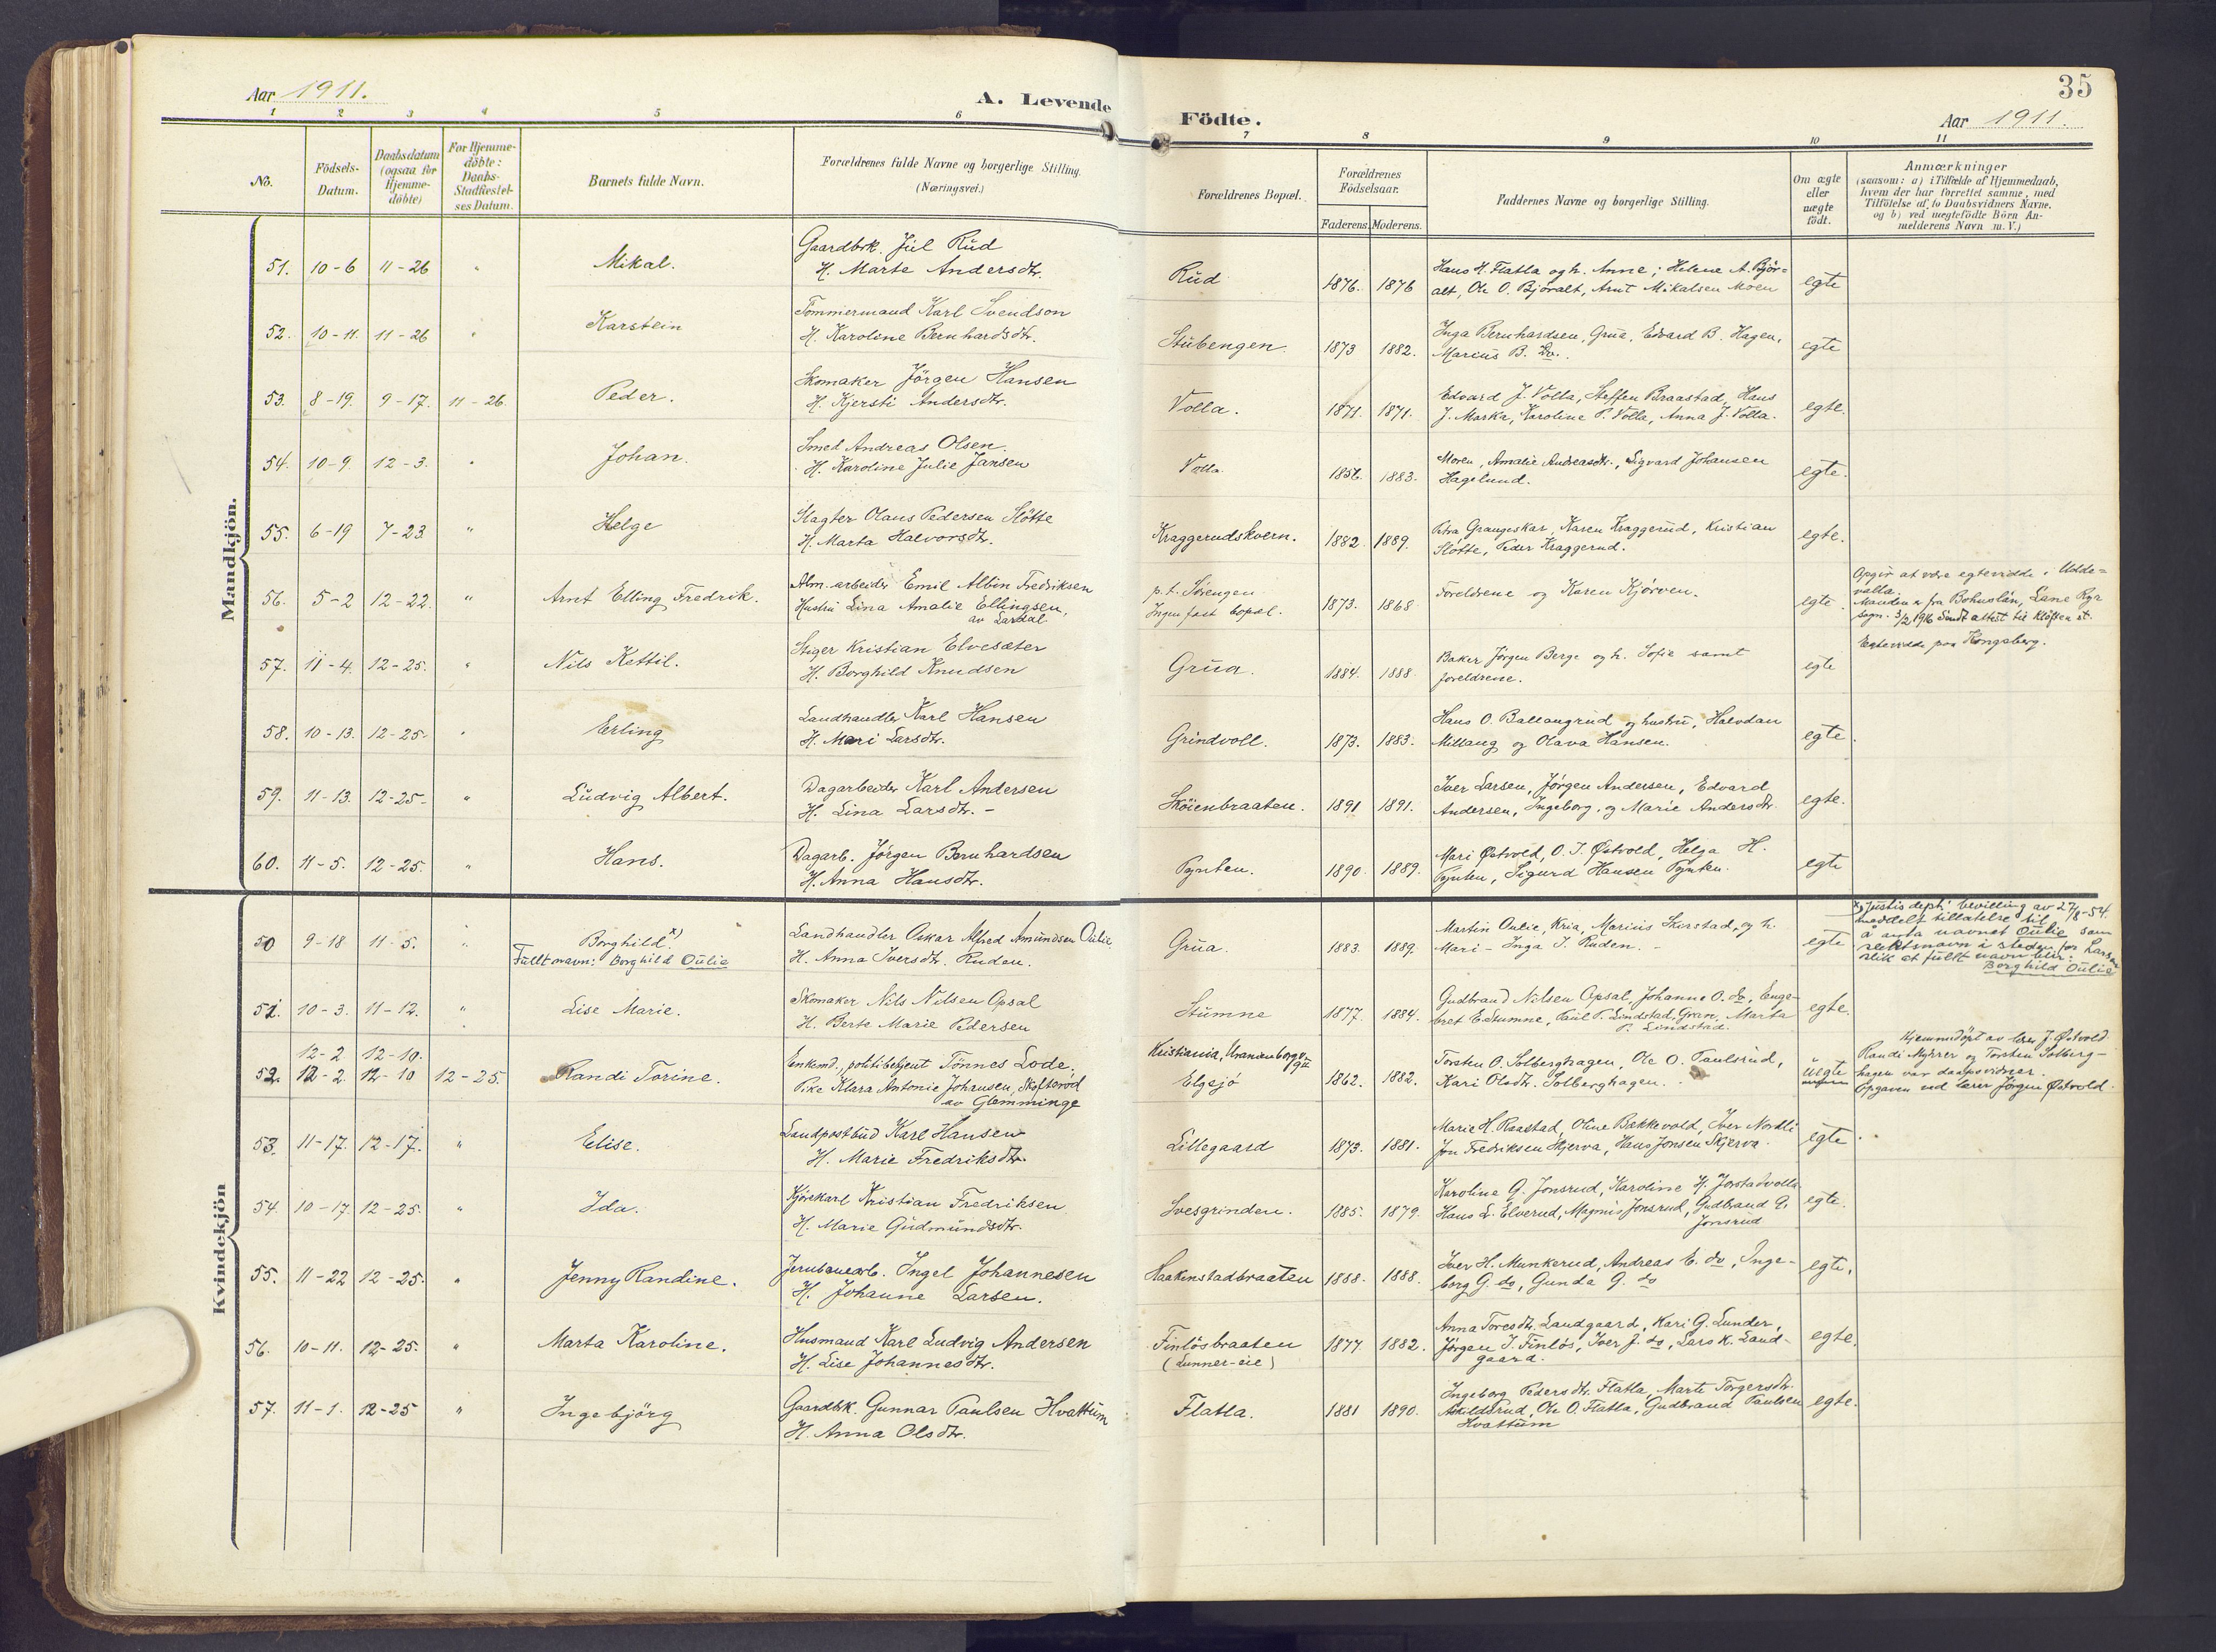 Aar 1911.
A. Levende Födte.
35
Aar 1911.
1 2 3 4 5 6 7 8 9 10 11
No.
Födsels-
Datum.
Daabsdatum
(ogsaa for
Hjemme-
döbte)
For Hjemme-
döbte:
Daabs-
Stadfæstel-
ses Datum.
Barnets fulde Navn.
Forældrenes fulde Navne og borgerlige Stilling.
(Næringsvei.)
Forældrenes Bopæl.
Forældrenes
Födselsaar.
Faderens. Moderens.
Faddernes Navne og borgerlige Stilling.
Om ægte
eller
uægte
födt.
Anmærkninger
(saasom: a) i Tilfælde af Hjemmedaab,
hvem der har forrettet samme, med
Tilföielse af to Daabsvidners Navne,
og b) ved uegtefödte Börn An-
melderens Navn m. V.)
Mandkjön.
51. 10-6 11-26 " Mikal.
Gaardbrk. Jul Rud
H. Marte Andersdtr.
Rud 1876. 1876
Hans H. Flatla og h. Anne; Helene A. Bjør-
alt, Ole O. Bjøralt, Arnt Mikalsen Moen
egte
52. 10-11. 11-26 " Karstein
Tømmermand Karl Svendson
H. Karoline Bernhardsdtr.
Stubengen 1873 1882.
Inga Bernhardsen, Grua, Edvard B. Hagen,
Marius B. Do.
egte
53. 8-19. 9-17. 11-26. Peder.
Skomaker Jörgen Hansen
H. Kjersti Andersdtr.
Volla. 1871. 1871.
Edvard J. Volla, Steffen Braastad, Hans
J. Marka, Karoline P. Volla, Anna J. Volla.
egte.
54. 10-9. 12-3. " Johan.
Smed Andreas Olsen.
H. Karoline Julie Jansen
Volla 1856. 1883.
Moren, Amalie Andreasdtr., Sigvard Johansen
Hagelund.
egte.
55. 6-19 7-23 " Helge
Slagter Olaus Pedersen Slötte
H. Marta Halvorsdtr.
Kraggerudskvern. 1882. 1889.
Petra Grangeskar, Karen Kraggerud, Kristian
Slötte, Peder Kraggerud.
egte.
56. 5-2 12-22. " Arnt Elling Fredrik.
Alm. arbeider Emil Albin Fredriksen
Hustru Lina Amalie Ellingsen,
av Lardal.
p. t. Sørengen
Ingen fast bopæl.
1873. 1868
Foreldrene og Karen Kjørven.
egte.
Opgir at være egteviede i Udde-
valla.
Manden er fra Bohuslän, Lane Ryr
sogn. 3/2 1916 Sendt attest til Kløften st.
57. 11-4. 12-25. " Nils Kettil.
Stiger Kristian Elvesæter
H. Borghild Knudsen
Grua. 1884. 1888
Baker Jörgen Berge og h. Sofie samt
foreldrene.
egte
Egteviede paa Kongsberg.
58. 10-13. 12-25. " Erling
Landhandler Karl Hansen
H. Mari Larsdtr.
Grindvoll. 1873. 1883.
Hans O. Ballangrud og hustru, Halvdan
Millang og Olava Hansen.
egte.
59. 11-13. 12-25. " Ludvig Albert.
Dagarbeider Karl Andersen
H. Lina Larsdtr. -
Sköienbraaten. 1891 1891.
Iver Larsen, Jørgen Andersen, Edvard
Andersen, Ingeborg, og Marie Andersdtr.
egte.
60. 11-5. 12-25. " Hans.
Dagarb. Jörgen Bernhardsen
H. Anna Hansdtr.
Pynten. 1890 1889.
Mari Østvold, O. J. Østvold, Helga H.
Pynten, Sigurd Hansen Pynten.
egte
Kvindekjön
50 9-18 11-5. " Borghild. x)
Fullt navn: Borghild Oulie
Landhandler Oskar Alfred Amundsen Oulie
H. Anna Iversdtr. Ruden.
Grua. 1883. 1889.
Martin Oulie, Kria, Marius Skirstad, og h.
Mari - Inga J. Ruden. -
egte
x) Justisdept. bevilling av 27/8-54.
meddelt tillatelse til
å anta navnet Oulie som
slektsnavn i steden for Larsen
slik at fullt navn blir:
Borghild Oulie
51. 10-3. 11-12. " Lise Marie.
Skomaker Nils Nilsen Opsal
H. Berte Marie Pedersen
Stumne 1877. 1884.
Gudbrand Nilsen Opsal, Johanne O. do, Enge-
bret E. Stumne, Paul P. Lindstad, Gran, Marta
P. Lindstad.
egte.
12-2 12-10.
52. 12-2. 12-10 12-25. Randi Torine.
Enkemd., politibetjent Tönnes Lode,
Pike Klara Antonie Johansen, Skofterød
av Glemminge
Kristiania, Uranienborg
Elgsjö 1862. 1882.
Torsten O. Solberghagen, Ole O. Paulsrud,
Kari Olsdtr. Solberghagen.
uegte
Hjemmedöpt av lærer J. Østvold.
Randi Myhrer og Torsten Solberg-
hagen var daapsvidner.
Opgaven ved lærer Jörgen Østvold.
53. 11-17. 12-17. " Elise.
Landpostbud Karl Hansen
H. Marie Fredriksdtr.
Lillegaard 1873. 1881.
Marie H. Raastad, Oline Bakkevold, Iver Nordli
Jon Fredriksen Skjerva, Hans Jonsen Skjerva.
egte.
54. 10-17. 12-25. " Ida.
Kjörekarl Kristian Fredriksen
H. Marie Gudmundsdtr.
Svesgrinden. 1885. 1879.
Karoline G. Jonsrud, Karoline H. Jorstadvolla
Hans L. Elverud, Magnus Jonsrud, Gudbrand G.
Jonsrud
egte.
55. 11-22 12-25. " Jenny Randine.
Jernbanearb. Ingel Johannesen
H. Johanne Larsen.
Haakenstadbraaten 1888. 1888.
Iver H. Munkerud, Andreas E. do, Inge-
borg G. do, Gunda G. do
egte.
56. 10-11. 12-25. " Marta Karoline.
Husmand Karl Ludvig Andersen
H. Lise Johannesdtr.
Finlösbraaten
(Lunner-eie)
1877. 1882.
Anna Toresdtr. Landgaard, Kari G. Lunder,
Jörgen I. Finlös, Iver J. do, Lars K. Land-
gaard.
egte.
57. 11-1. 12-25 " Ingebjörg
Gaardbk. Gunnar Paulsen Hvattum
H. Anna Olsdtr.
Flatla. 1881 1890.
Ingeborg Pedersdtr. Flatla, Marte Torgersdtr.
Askildsrud, Ole O. Flatla, Gudbrand Paulsen
Hvattum
egte.